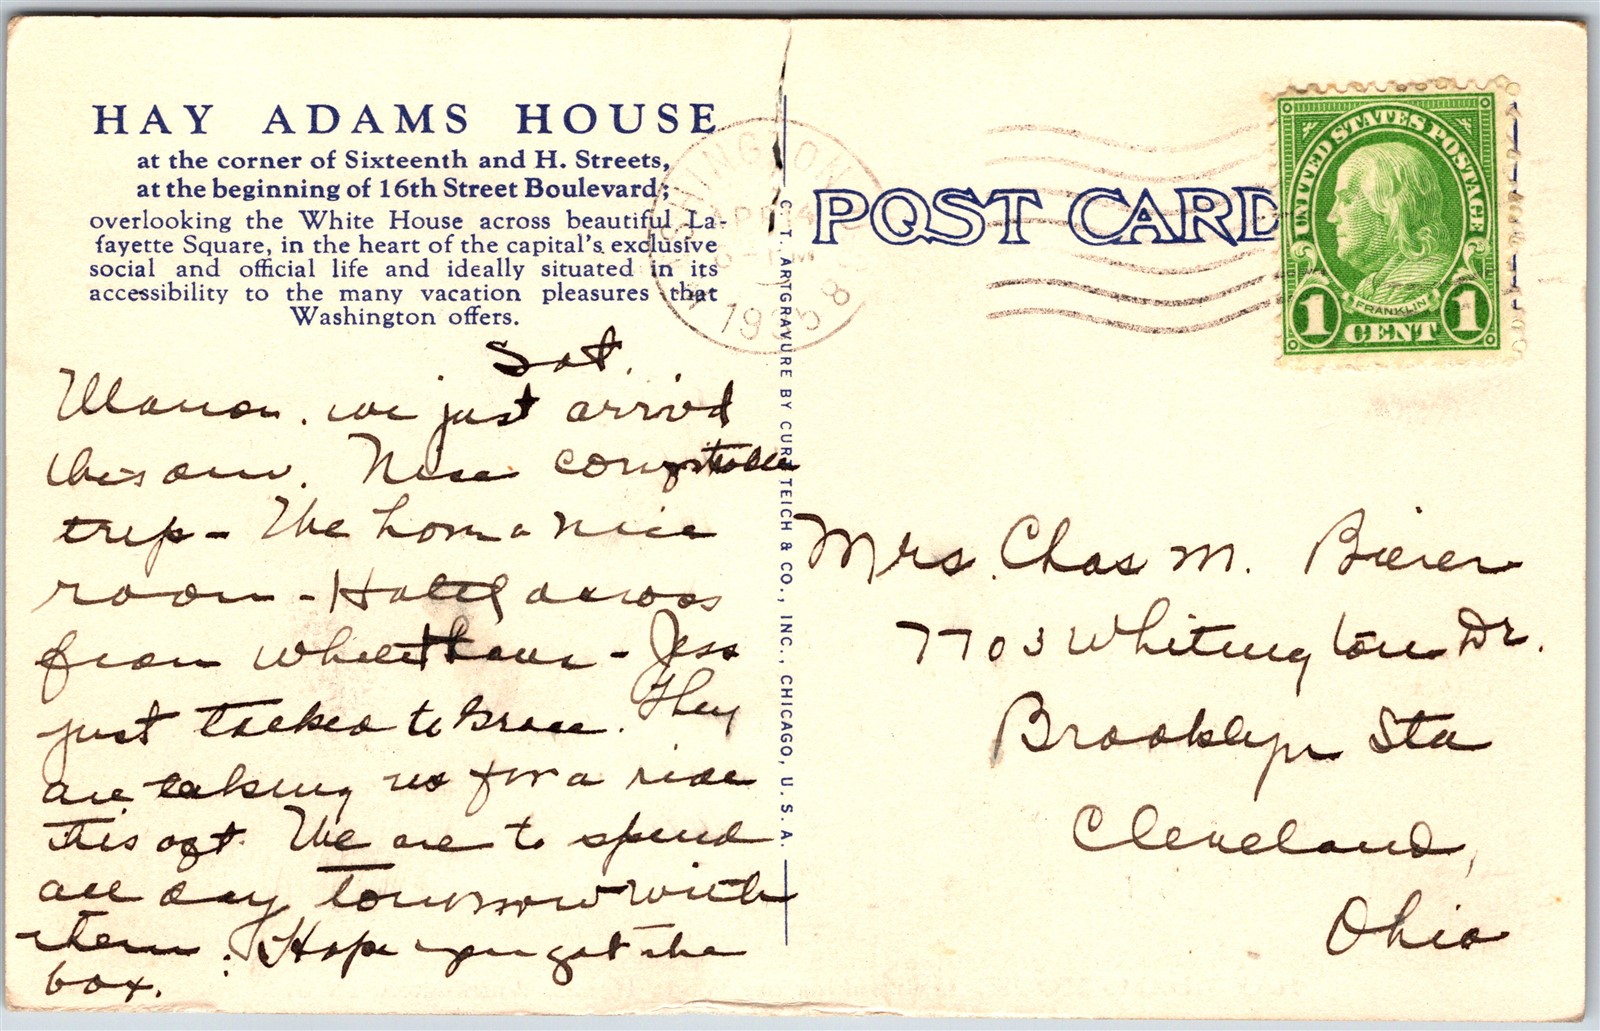 HAY ADAMS HOUSE
at the corner of Sixteenth and H. Streets,
at the beginning of 16th Street Boulevard;
overlooking the White House across beautiful La-
fayette Square, in the heart of the capital's exclusive
social and official life and ideally situated in its
accessibility to the many vacation pleasures that
Washington offers.
Sat.
Marion. we just arrived
this am. Nice comfortable
trip - We have a nice
room - Hotel across
from White House - Jess
just talked to Grace. They
are taking us for a ride
this aft. We are to spend
all day tomorrow with
them. Hope you got the
box.
C. T. ARTGRAVURE BY CURT TEICH & CO., INC., CHICAGO, U. S. A.
WASHINGTON
APR 14
1935
8
POST CARD
UNITED STATES POSTAGE
FRANKLIN
1 CENT 1
Mrs. Chas M. Bierer
7703 Whitington Dr.
Brooklyn Sta
Cleveland,
Ohio